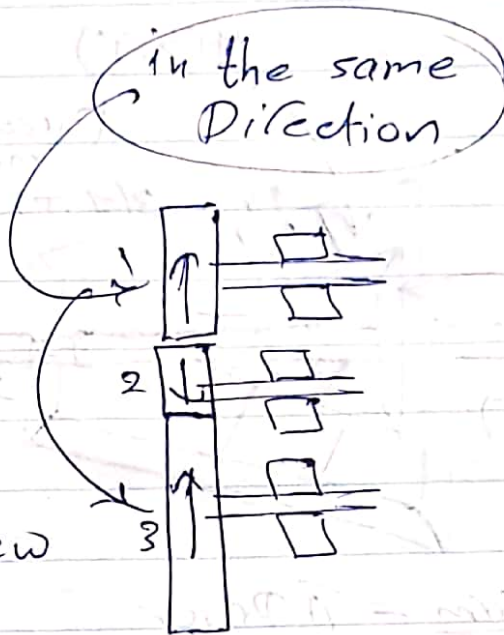 in the same
Direction
1
2
3
ew